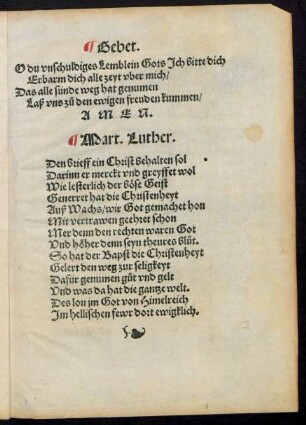 ¶ Gebet.
O du vnschuldiges Lemblein Gots Jch bitte dich
Erbarm dich alle zeyt vber mich/
Das alle sünde weg hat genumen
Laß vns zů den ewigen freuden kummen/
A M E N.
¶ Mart. Luther.
Den brieff ein Christ behalten sol
Darinn er merckt vnd greyffet wol
Wie lesterlich der böse Geist
Generret hat die Christenheyt
Auß Wachs/wir Got gemachet hon
Mit vertrawen geehret schon
Mer dem den rechten waren Got
Vnd höher denn seyn theures blůt.
So hat der Bapst die Christenheyt
Gelert den weg zur seligkeyt
Dafür genumen gůt vnd gelt
Vnd was da hat die gantze welt.
Des lon jm Got von Himelreich
Jm hellischen fewr dort ewigklich.